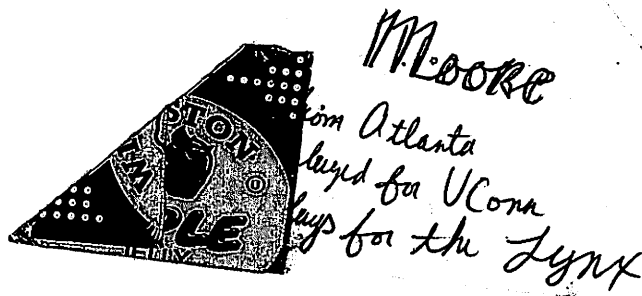 M. Moore
from Atlanta
played for UConn
plays for the Lynx
STON
PLE
JELLY